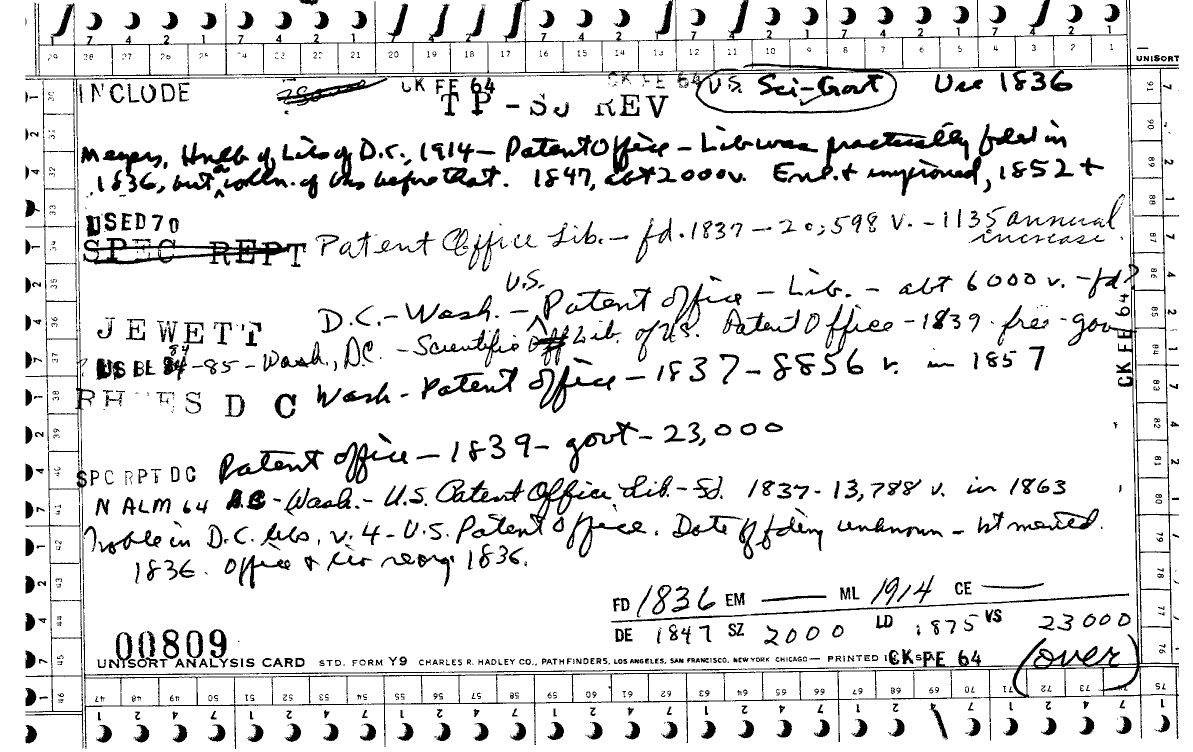 29 28 27 26 25 24 23 22 21 20 19 18 17 16 15 14 13 12 11 10 9 8 7 6 5 4 3 2 1
UNISORT
INCLUDE CK FE 64 CK FE 64 U.S. Sci-Govt Use 1836
TP-SJ REV
Meyers, Hndb of Libs of D.C., 1914 - Patent Office - Lib was practically fded in
1836, but a colln. of bks before that. 1847, abt 2000 v. Enl. + improved, 1852 +
USED 70
SPEC REPT Patent Office Lib. - fd. 1837 - 20,598 v. - 1135 annual
increase.
U.S.
D.C. - Wash. - Patent Office - Lib. - abt 6000 v. - fd?
JEWETT
US BE 84 -85 - Wash., D.C. - Scientific Lib. of U.S. Patent Office - 1839 - free - gov
RHEES D C Wash - Patent Office - 1837 - 8856 v. in 1857
CK FE 64
SPC RPT DC Patent Office - 1839 - govt - 23,000
N ALM 64 DC - Wash. - U.S. Patent Office Lib - fd. 1837 - 13,788 v. in 1863
Noble in D.C. libs, v. 4 - U.S. Patent Office. Date of fding unknown - 1st mented.
1836. Office & lib reorg 1836.
FD 1836 EM — ML 1914 CE —
DE 1847 SZ 2000 LD 1875 VS 23000
00809
UNISORT ANALYSIS CARD STD. FORM Y9 CHARLES R. HADLEY CO., PATHFINDERS, LOS ANGELES, SAN FRANCISCO, NEW YORK CHICAGO — PRINTED CK FE 64 (over)